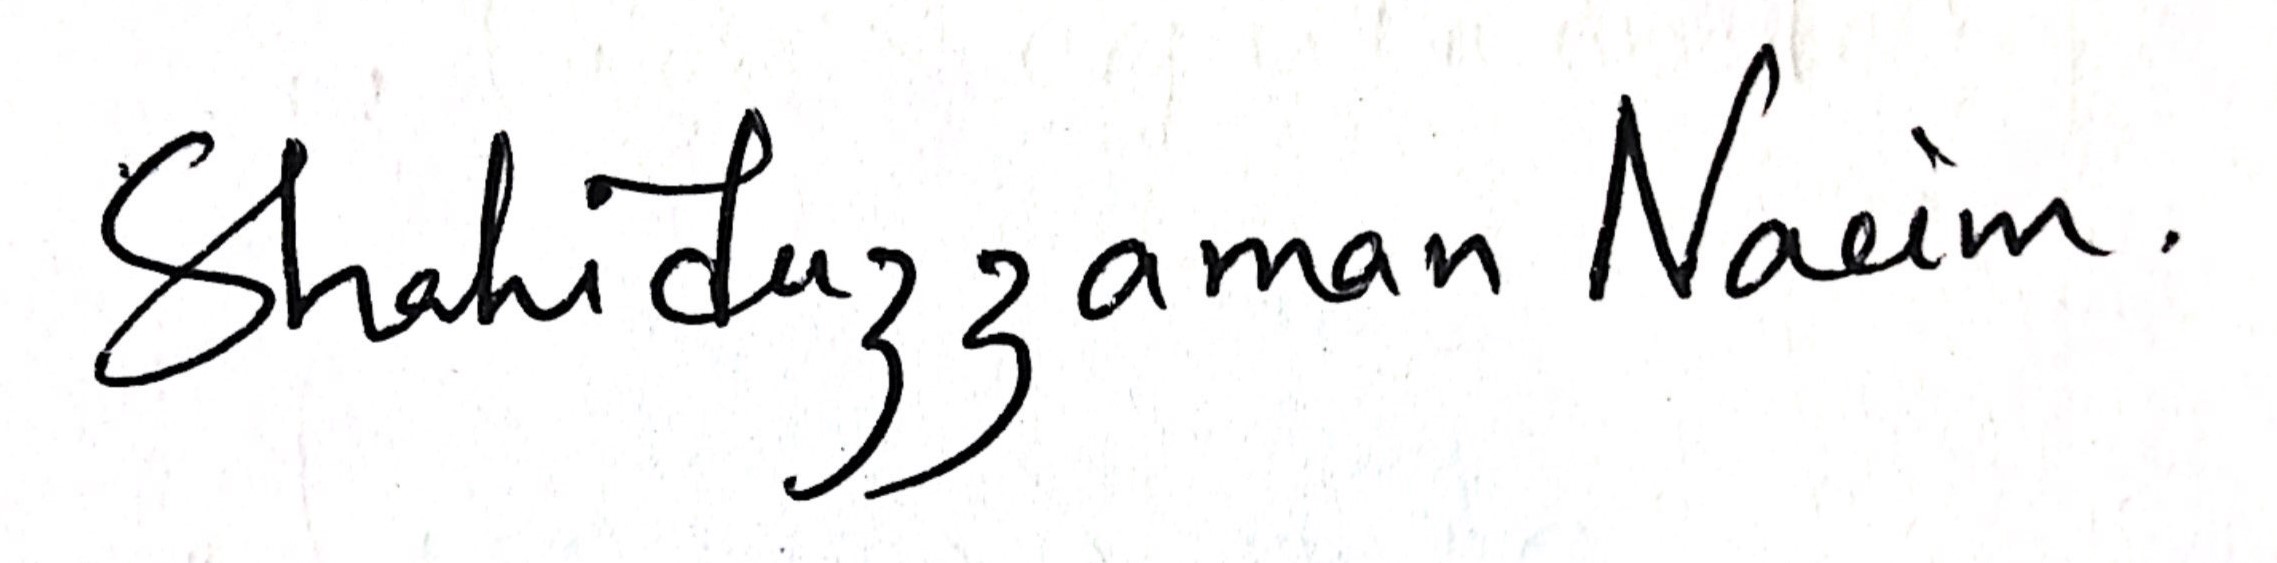 Shahiduzzaman Naeim.